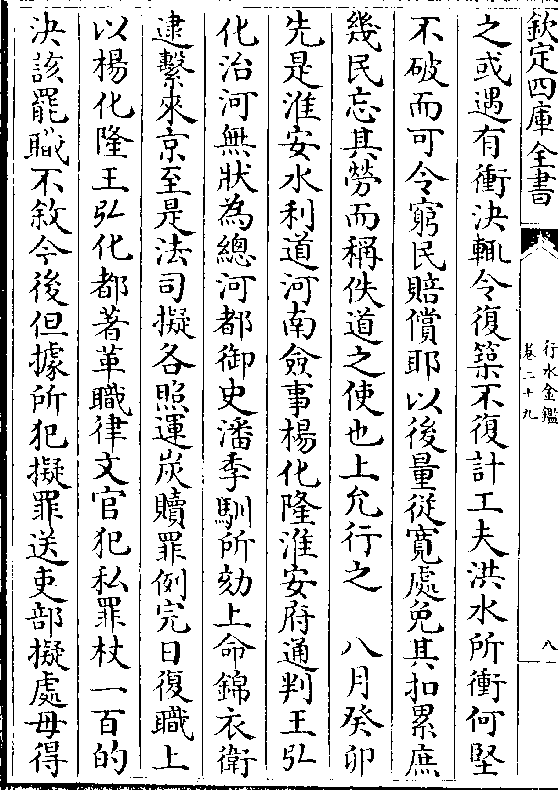 欽定四庫全書
行水金鑑
卷二十九
八
之或遇有衝決輒令復築不復計工夫洪水所衝何堅
不破而可令窮民賠償耶以後量從寬處免其扣累庶
幾民忘其勞而稱佚道之使也上允行之　八月癸卯
先是淮安水利道河南僉事楊化隆淮安府通判王弘
化治河無狀為總河都御史潘季馴所劾上命錦衣衛
逮繫來京至是法司擬各照運炭贖罪例完日復職上
以楊化隆王弘化都著革職律文官犯私罪杖一百的
決該罷職不敘今後但據所犯擬罪送吏部擬處毋得